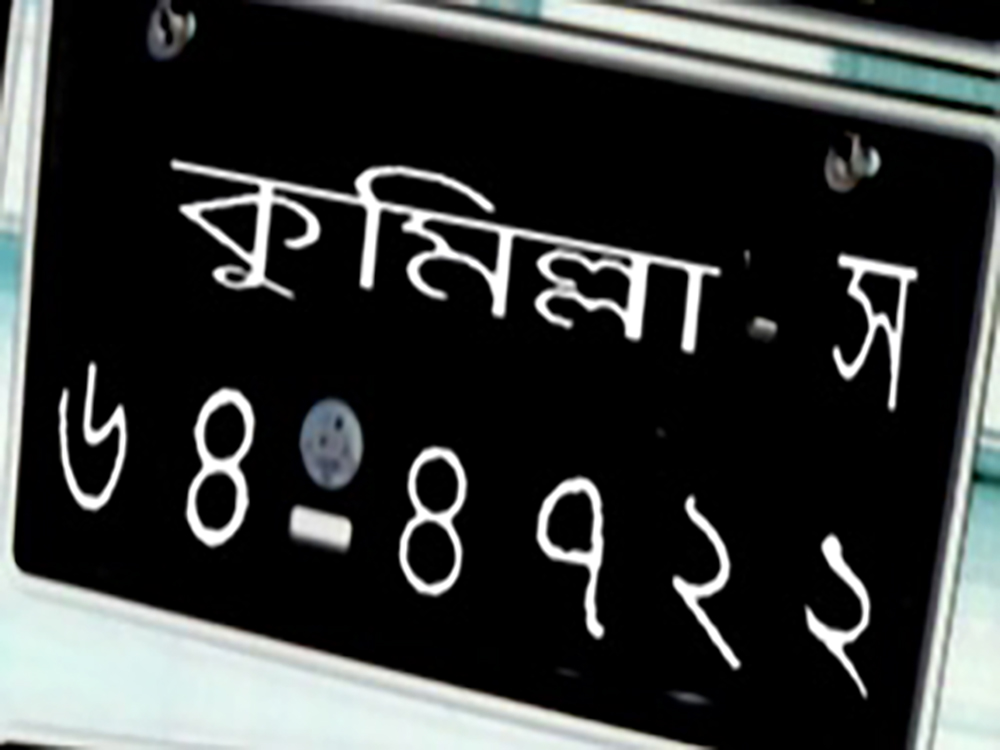 কুমিল্লা - স
৬৪-৪৭২২